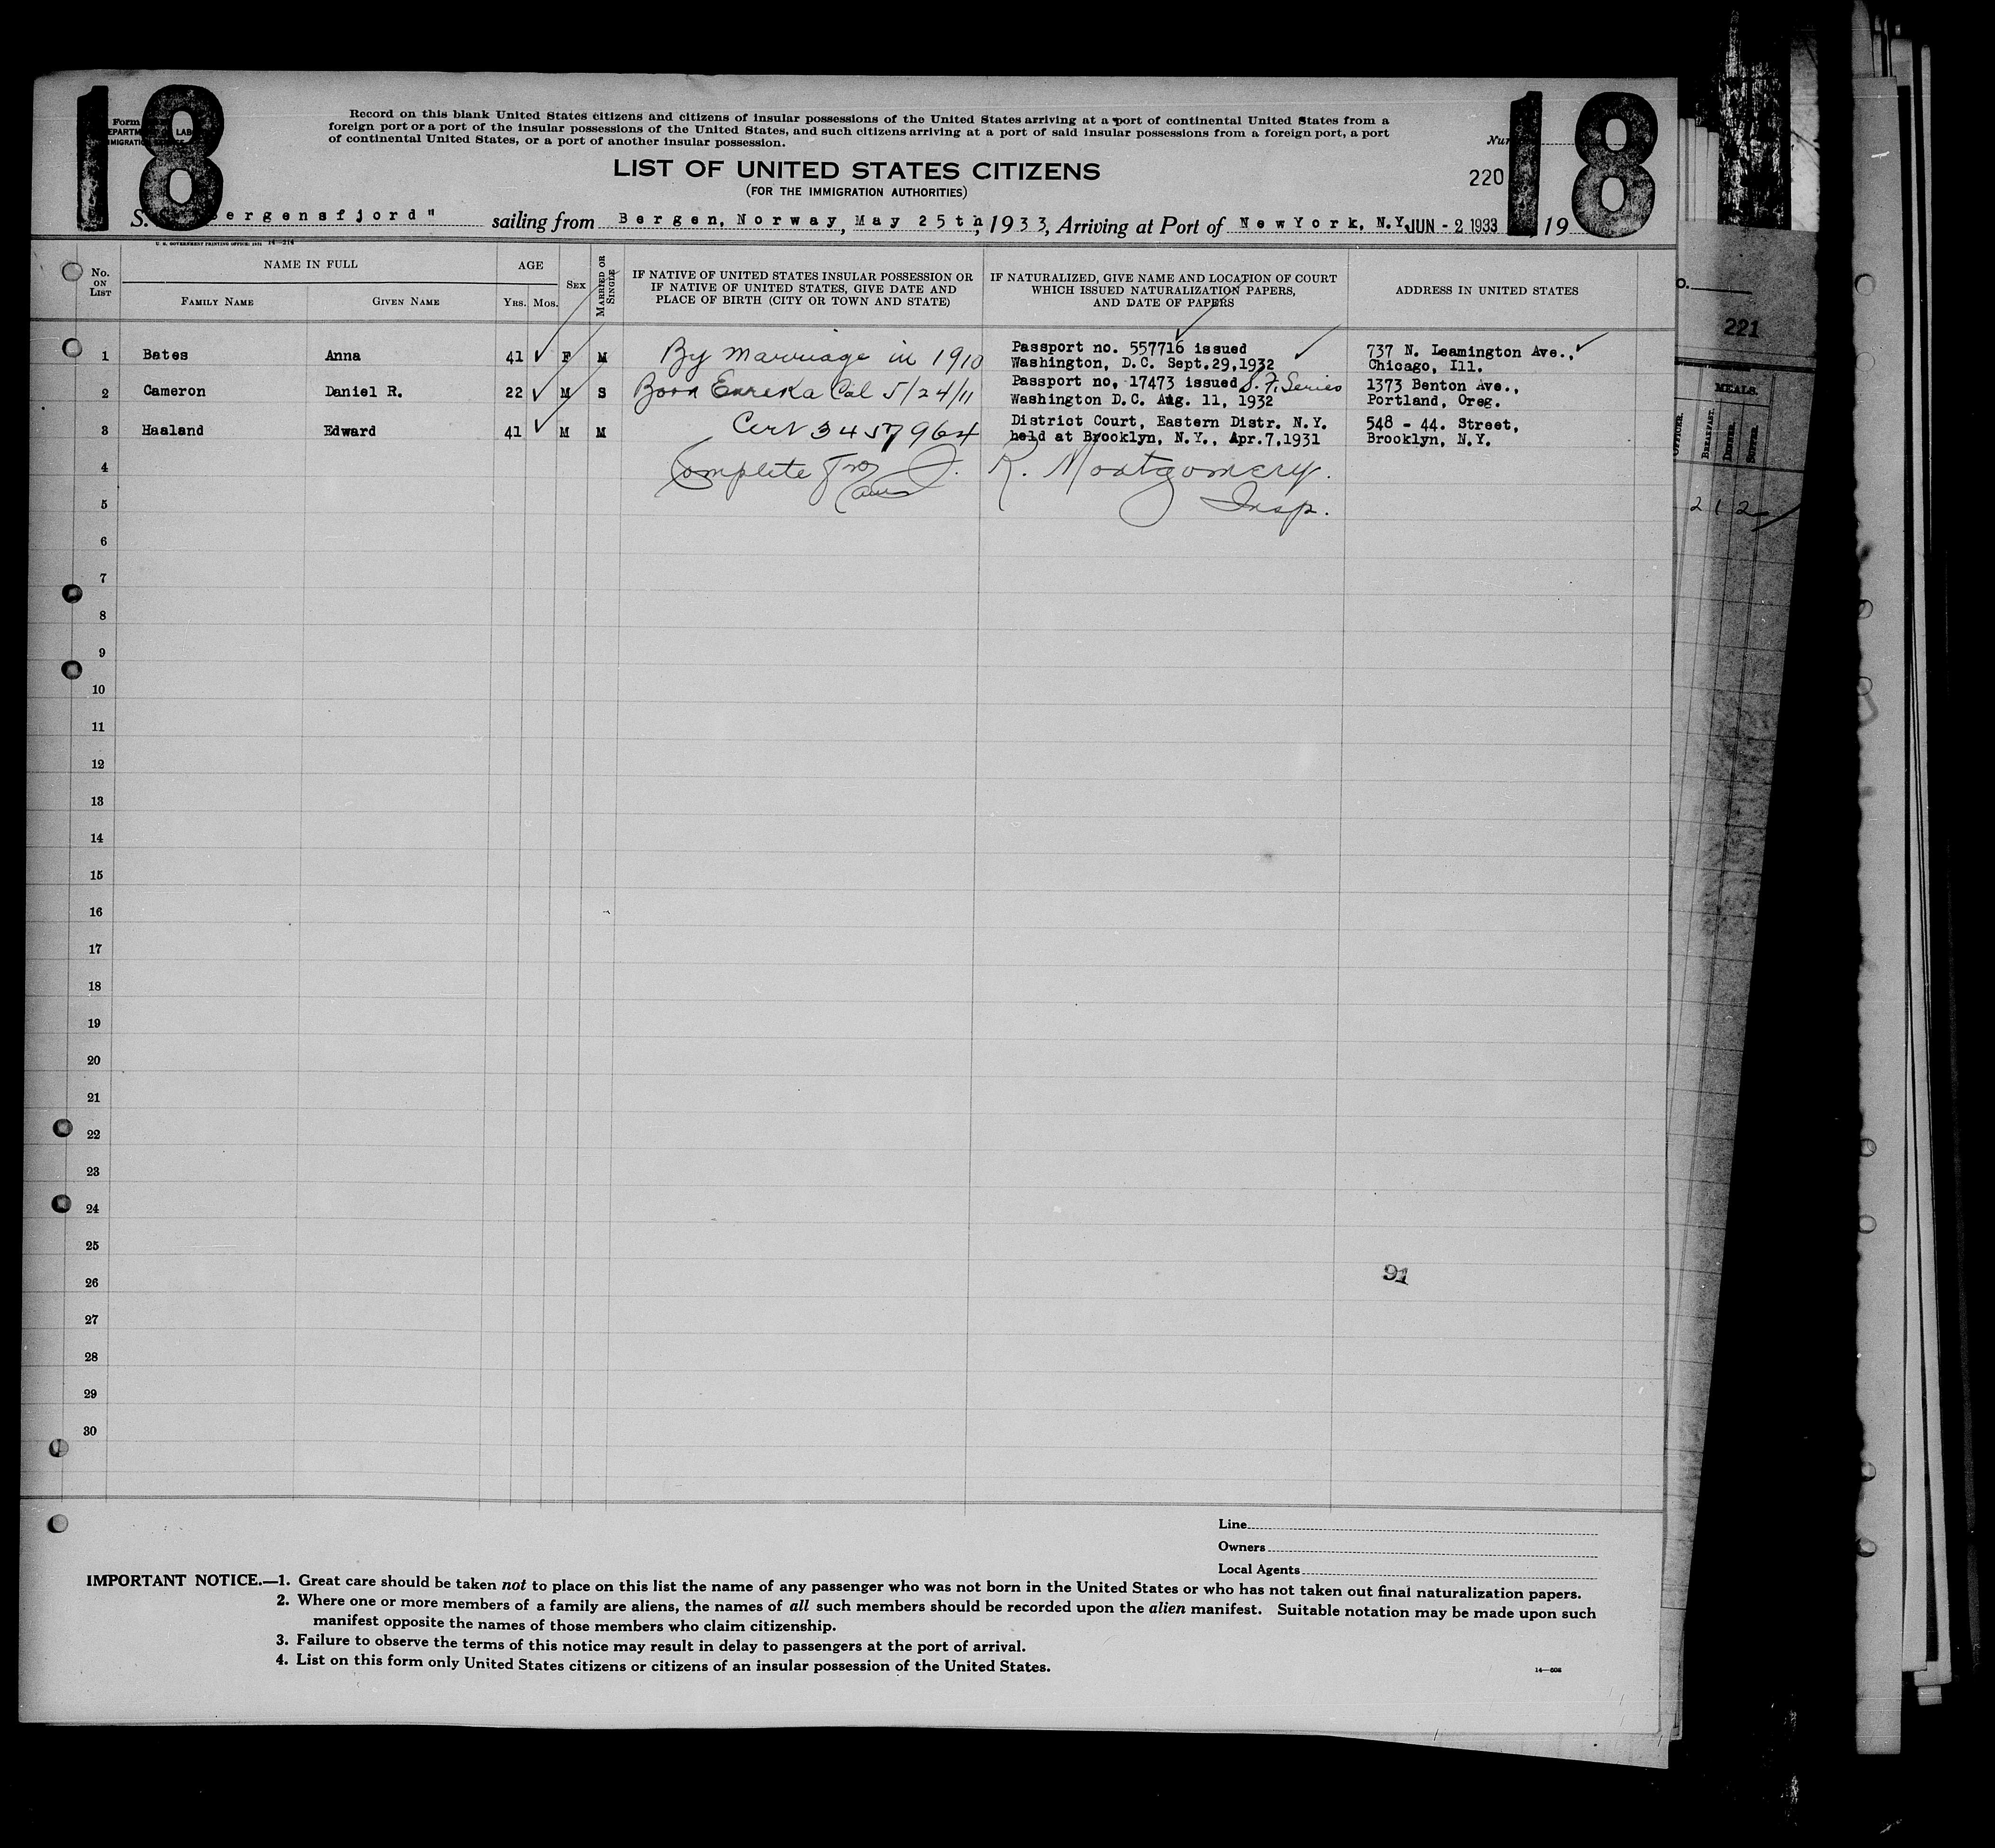 18
18
Form
DEPARTM LABO
IMMIGRATION
Record on this blank United States citizens and citizens of insular possessions of the United States arriving at a port of continental United States from a
foreign port or a port of the insular possessions of the United States, and such citizens arriving at a port of said insular possessions from a foreign port, a port
of continental United States, or a port of another insular possession.
LIST OF UNITED STATES CITIZENS
(FOR THE IMMIGRATION AUTHORITIES)
220
S. ergensfjord" sailing from Bergen, Norway, May 25th, 1933, Arriving at Port of New York, N.Y. JUN - 2 1933 19
U. S. GOVERNMENT PRINTING OFFICE: 1931 14—214
No. ON LIST
NAME IN FULL
FAMILY NAME GIVEN NAME
AGE
YRS. MOS.
SEX
MARRIED OR SINGLE
IF NATIVE OF UNITED STATES INSULAR POSSESSION OR
IF NATIVE OF UNITED STATES, GIVE DATE AND
PLACE OF BIRTH (CITY OR TOWN AND STATE)
IF NATURALIZED, GIVE NAME AND LOCATION OF COURT
WHICH ISSUED NATURALIZATION PAPERS,
AND DATE OF PAPERS
ADDRESS IN UNITED STATES
1 Bates Anna 41 F M By marriage in 1910 Passport no. 557716 issued
Washington, D.C. Sept.29,1932 737 N. Leamington Ave.,
Chicago, Ill.
2 Cameron Daniel R. 22 M S Born Eureka Cal 5/24/11 Passport no, 17473 issued S.F. Series
Washington D.C. Aug. 11, 1932 1373 Benton Ave.,
Portland, Oreg.
3 Haaland Edward 41 M M Cert 3457964 District Court, Eastern Distr. N.Y.
held at Brooklyn, N.Y., Apr.7,1931 548 - 44. Street,
Brooklyn, N.Y.
4 Complete J. R. Montgomery.
5 Insp.
6
7
8
9
10
11
12
13
14
15
16
17
18
19
20
21
22
23
24
25
26
27
28
29
30
91
Line
Owners
Local Agents
IMPORTANT NOTICE.—1. Great care should be taken not to place on this list the name of any passenger who was not born in the United States or who has not taken out final naturalization papers.
2. Where one or more members of a family are aliens, the names of all such members should be recorded upon the alien manifest. Suitable notation may be made upon such
manifest opposite the names of those members who claim citizenship.
3. Failure to observe the terms of this notice may result in delay to passengers at the port of arrival.
4. List on this form only United States citizens or citizens of an insular possession of the United States.
221
MEALS.
BREAKFAST.
DINNER.
SUPPER.
2 1 2